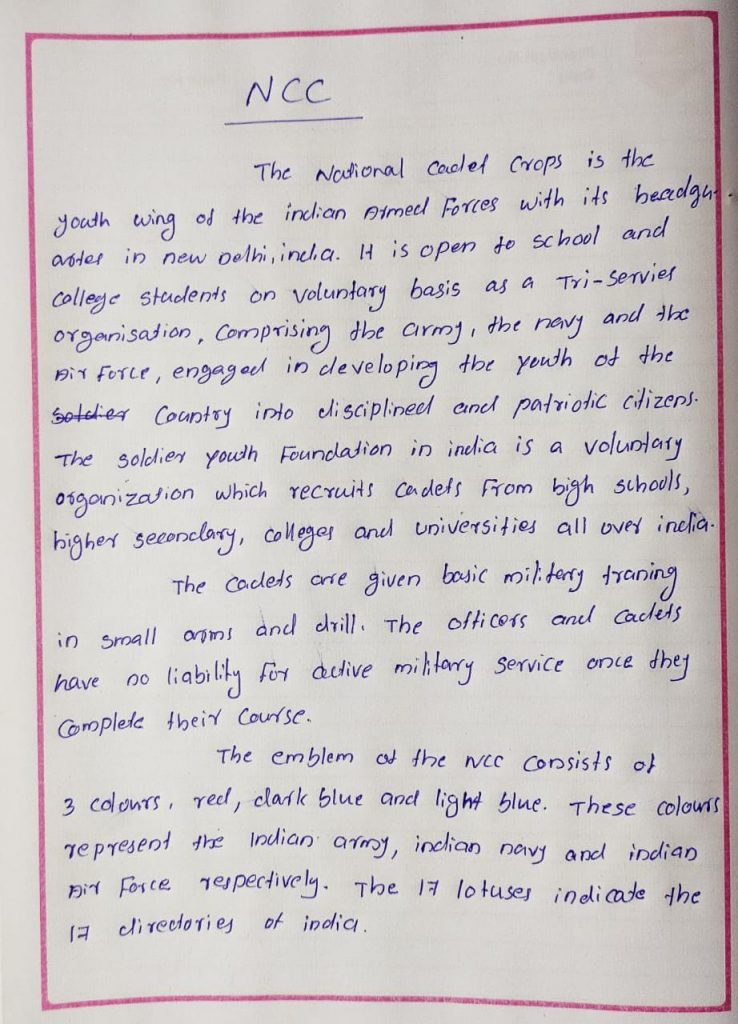 NCC
The National Cadet Crops is the
youth wing of the indian Armed Forces with its headqu-
arter in new Delhi, india. It is open to school and
college students on voluntary basis as a Tri-servies
organisation, Comprising the army, the navy and the
Air force, engaged in developing the youth of the
soldier Country into disciplined and patriotic citizens.
The soldier youth Foundation in india is a voluntary
organization which recruits cadets From high schools,
higher secondary, colleges and universities all over india.
The cadets are given basic military traning
in small arms and drill. The officers and cadets
have no liability for active military service once they
Complete their Course.
The emblem of the NCC consists of
3 colours, red, dark blue and light blue. These colours
represent the Indian army, indian navy and indian
Air Force respectively. The 17 lotuses indicate the
17 directories of india.